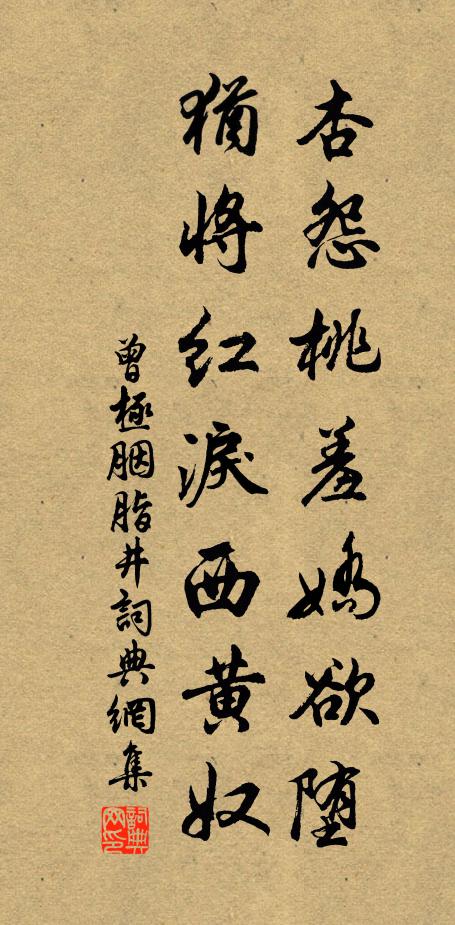 杏怨桃羞嬌欲墮
猶將紅淚西黃奴
曾極胭脂井詞典網集
詞典網印